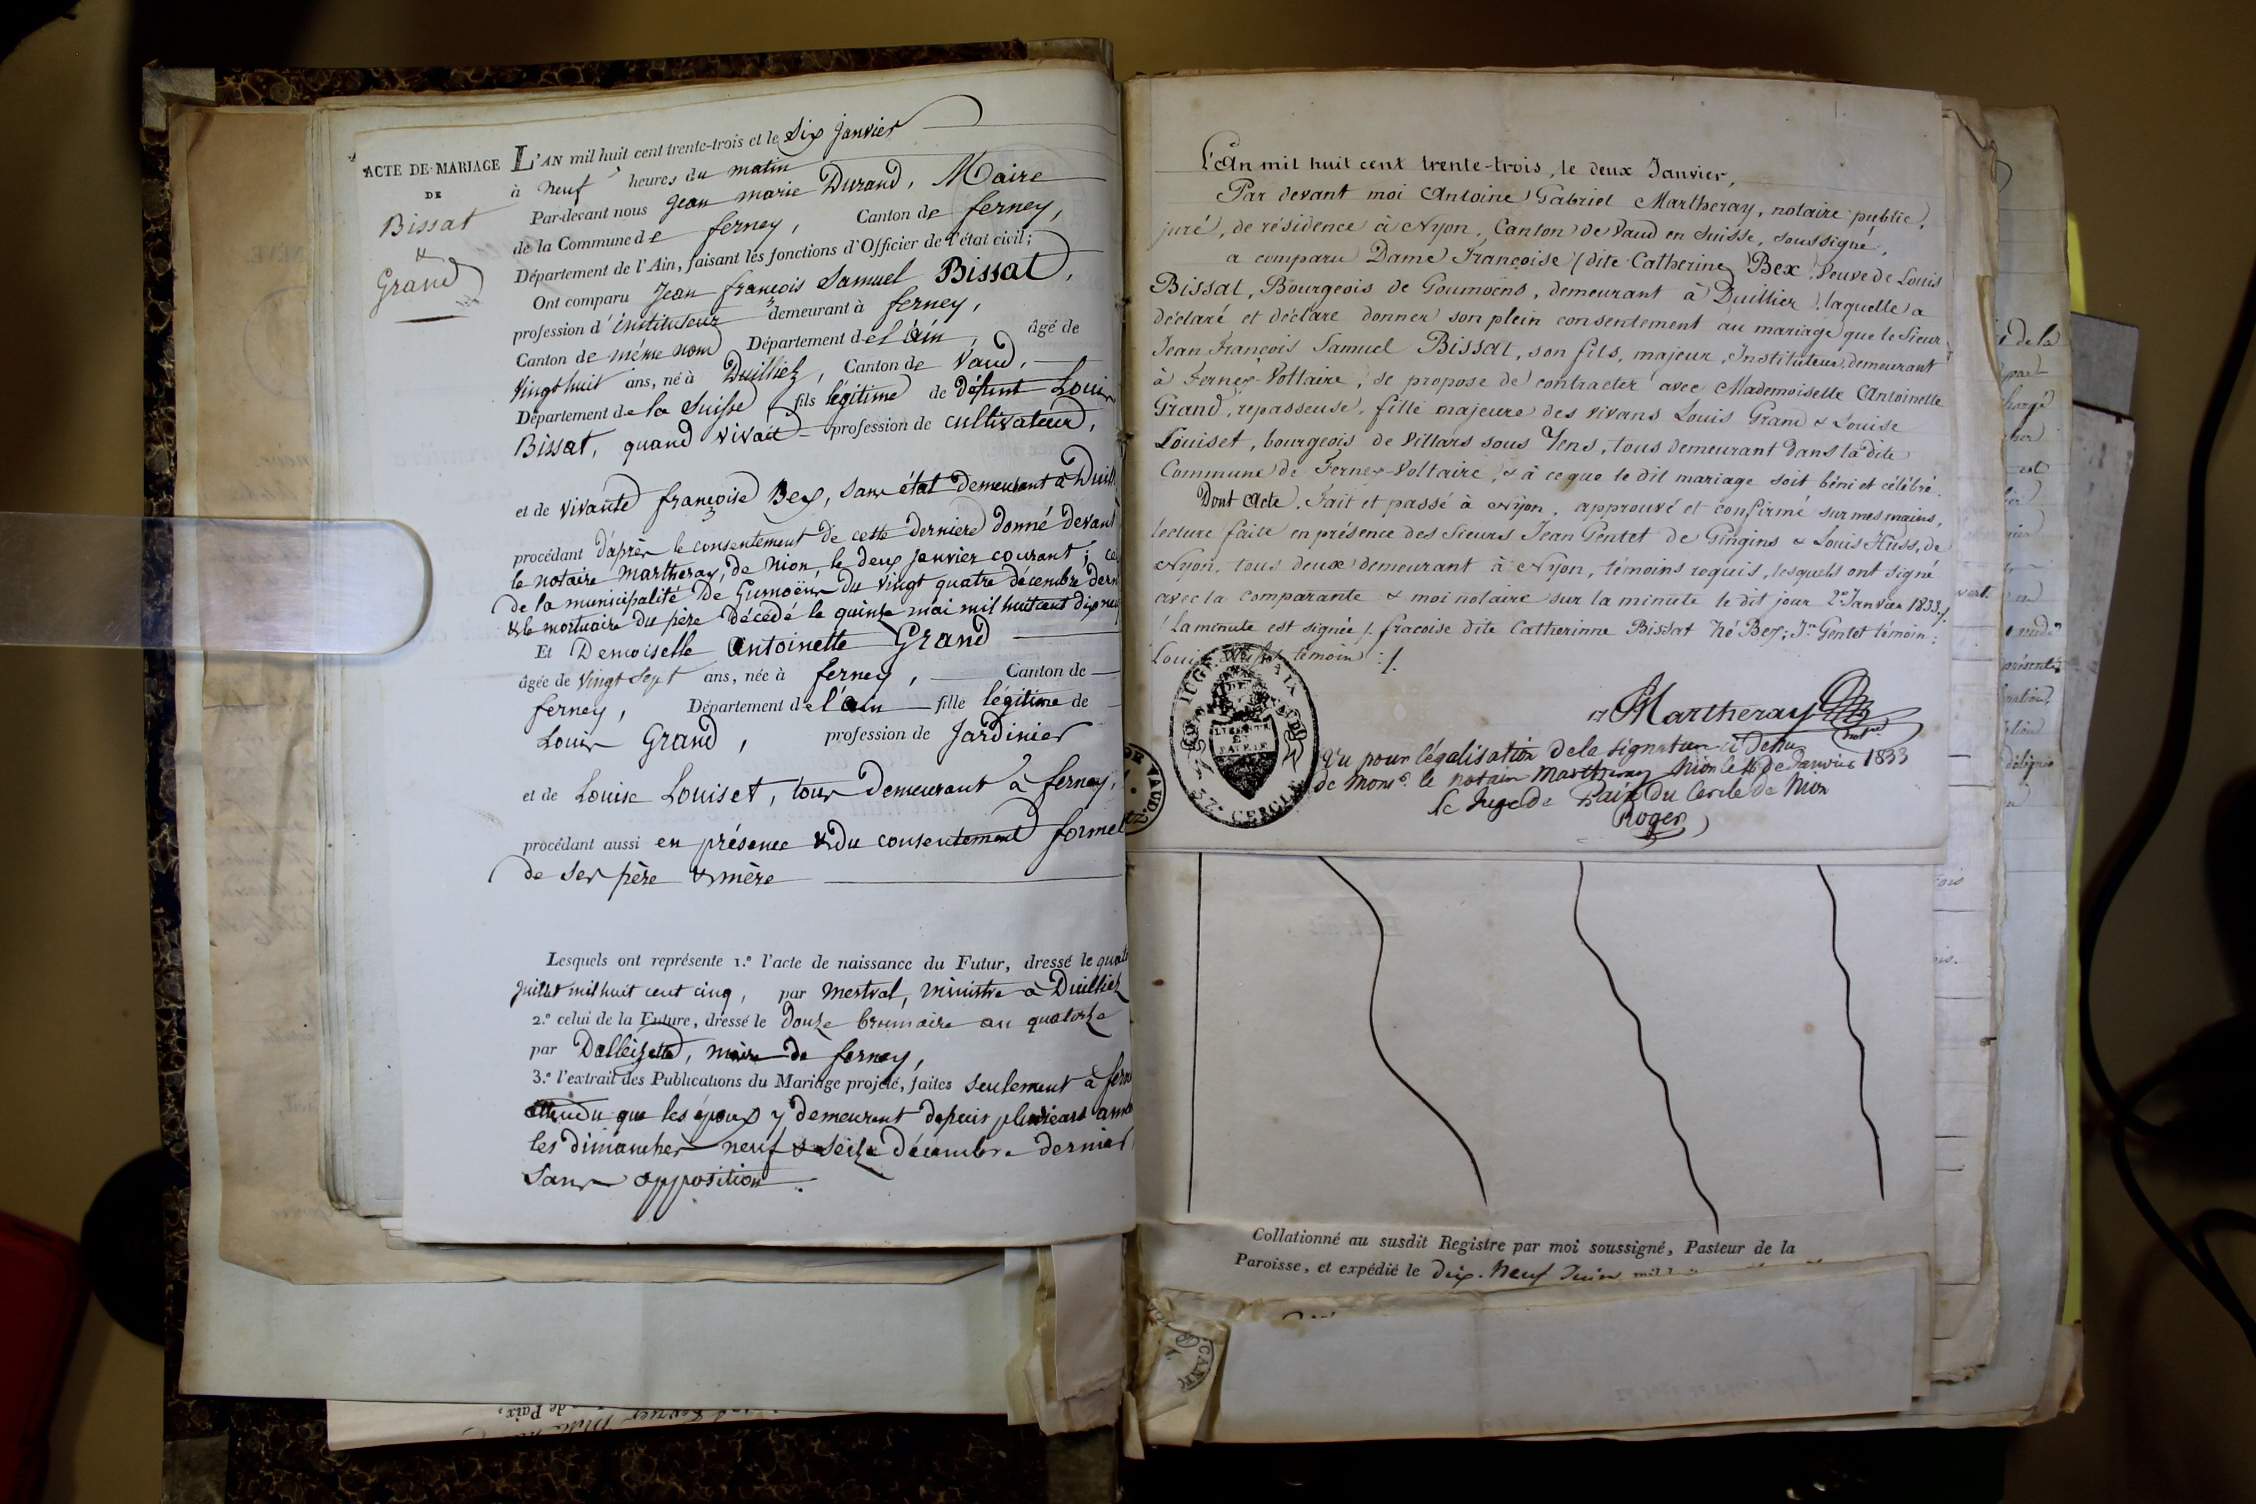 ACTE DE MARIAGE
DE
Bissat
&
Grand
L'AN mil huit cent trente-trois et le Six janvier
à neuf heures du matin
Par-devant nous jean marie Durand, Maire
de la Commune de ferney, Canton de ferney,
Département de l'Ain, faisant les fonctions d'Officier de l'état civil;
Ont comparu Jean françois Samuel Bissat,
profession d'instituteur demeurant à ferney,
Canton de même nom Département de l'Ain, âgé de
Vingt huit ans, né à Duilliez, Canton de Vaud,
Département de la Suisse fils légitime de défunt Louis
Bissat, quand vivait profession de cultivateur,
et de vivante françoise Bex, sans état demeurant à Duill
procédant d'après le consentement de cette dernière donné devant
le notaire Martheray, de Nion, le deux janvier courant; ce
de la municipalité de Gumoëns du vingt quatre décembre dern
& le mortuaire du père décédé le quinze mai mil huit cent dix neu
Et Demoiselle Antoinette Grand
âgée de Vingt Sept ans, née à ferney, Canton de
ferney, Département de l'Ain fille légitime de
Louis Grand, profession de Jardinier
et de Louise Louiset, tous demeurant à ferney,
procédant aussi en présence & du consentement formel
de ses père & mère
Lesquels ont représenté 1.º l'acte de naissance du Futur, dressé le quat
juillet mil huit cent cinq, par Mestral, ministre à Duilliez
2.º celui de la Future, dressé le douze brumaire an quatorze
par Dalleizette, maire de ferney,
3.º l'extrait des Publications du Mariage projeté, faites seulement à fern
attendu que les époux y demeurent depuis plusieurs anné
les dimanches neuf & seize décembre dernier
sans opposition.
L'An mil huit cent trente-trois, le deux Janvier,
Par devant moi Antoine Gabriel Martheray, notaire public,
juré, de résidence à Nyon, Canton de Vaud en Suisse, soussigné,
a comparu Dame Françoise (dite Catherine) Bex Veuve de Louis
Bissat, Bourgeois de Goumoëns, demeurant à Duillier, laquelle a
déclaré et déclare donner son plein consentement au mariage que le Sieur
Jean François Samuel Bissat, son fils, majeur, Instituteur, demeurant
à Ferney-Voltaire, se propose de contracter avec Mademoiselle Antoinette
Grand, repasseuse, fille majeure des vivans Louis Grand & Louise
Louiset, bourgeois de Villars sous Yens, tous demeurant dans la dite
Commune de Ferney-Voltaire, & à ce que le dit mariage soit béni et célébré.
Dont Acte. Fait et passé à Nyon, approuvé et confirmé sur mes mains,
lecture faite en présence des Sieurs Jean Gentet de Gingins & Louis Huss, de
Nyon, tous deux demeurant à Nyon, témoins requis, lesquels ont signé
avec la comparante & moi notaire sur la minute le dit jour 2e Janvier 1833./.
/ La minute est signée /. fracoise dite Catherinne Bissat Né Bex; Jn Gentet témoin;
Louis témoin :/.
Martheray
Vu pour légalisation de la signature ci dessus
de Monsr. le notaire Martheray Nion le de Janvier 1833
le Juge de Paix du Cercle de Nion
Roger
JUGE DE PAIX
CERCLE
LIBERTÉ
ET
PATRIE
DE VAUD
Collationné au susdit Registre par moi soussigné, Pasteur de la
Paroisse, et expédié le dix-neuf Juin